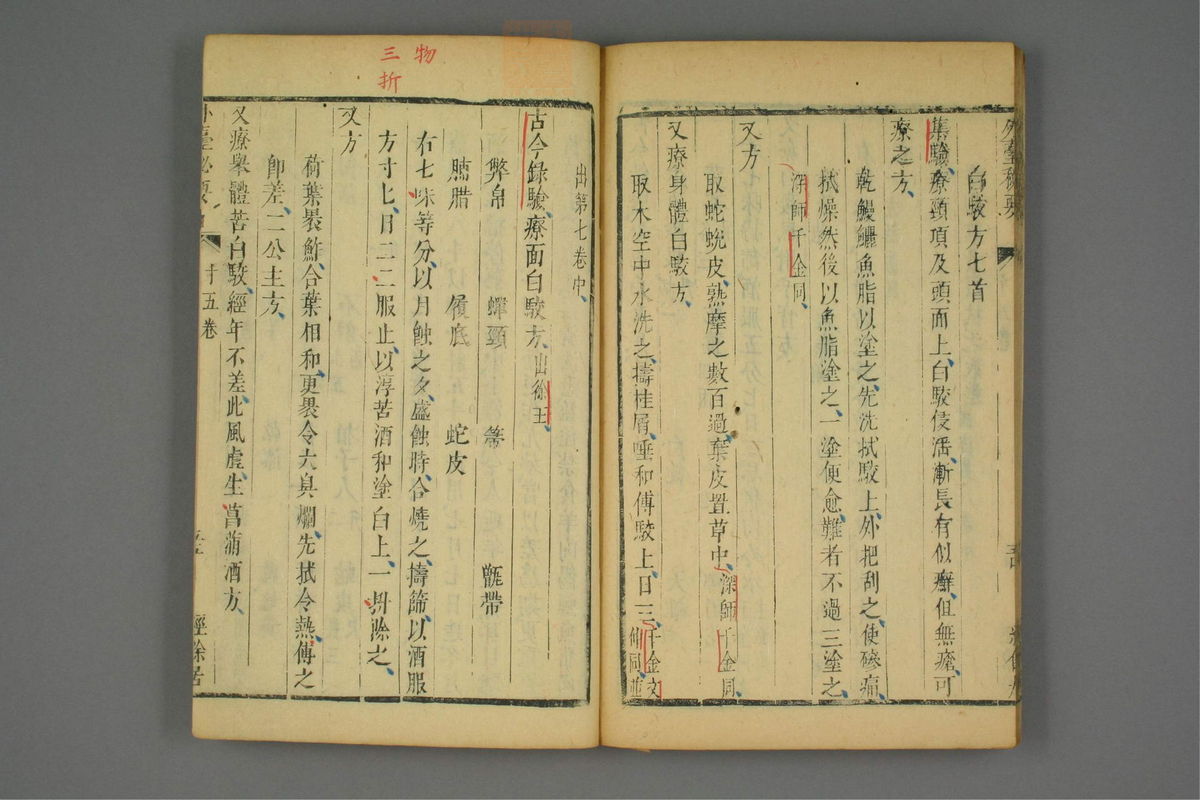 白駮方七首
集驗療頸項及頭面上白駮侵淫漸長有似癬但無瘡可
療之方
乾鰻鱺魚脂以塗之先洗拭駮上外把刮之使磣痛
拭燥然後以魚脂塗之一塗便愈難者不過三塗之
深師千金同
又方
取蛇蛻皮熟摩之數百過棄皮置草中深師千金同
又療身體白駮方
取木空中水洗之擣桂屑唾和傅駮上日三千金文
仲同並
出第七卷中
古今錄驗療面白駮方出徐王
弊帛 蟬頸 箒 甑帶
脯腊 履底 蛇皮
右七味等分以月蝕之夕盛蝕時合燒之擣篩以酒服
方寸匕日三二服止以淳苦酒和塗白上一拂除之
又方
荷葉裹鮓合葉相和更裹令大臭爛先拭令熱傅之
即差二公主方
又療舉體苦白駮經年不差此風虛生菖蒲酒方
卅五卷
經餘居
物
三折